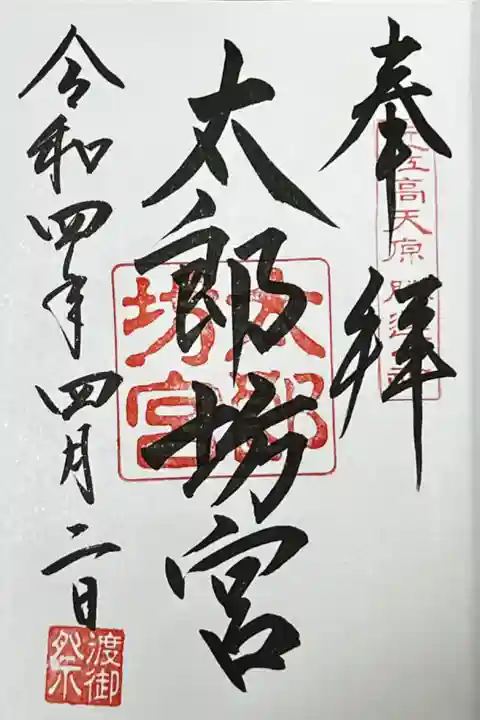 奉拝
高天原
太郎坊宮
太郎坊宮
令和四年四月二日
渡御祭